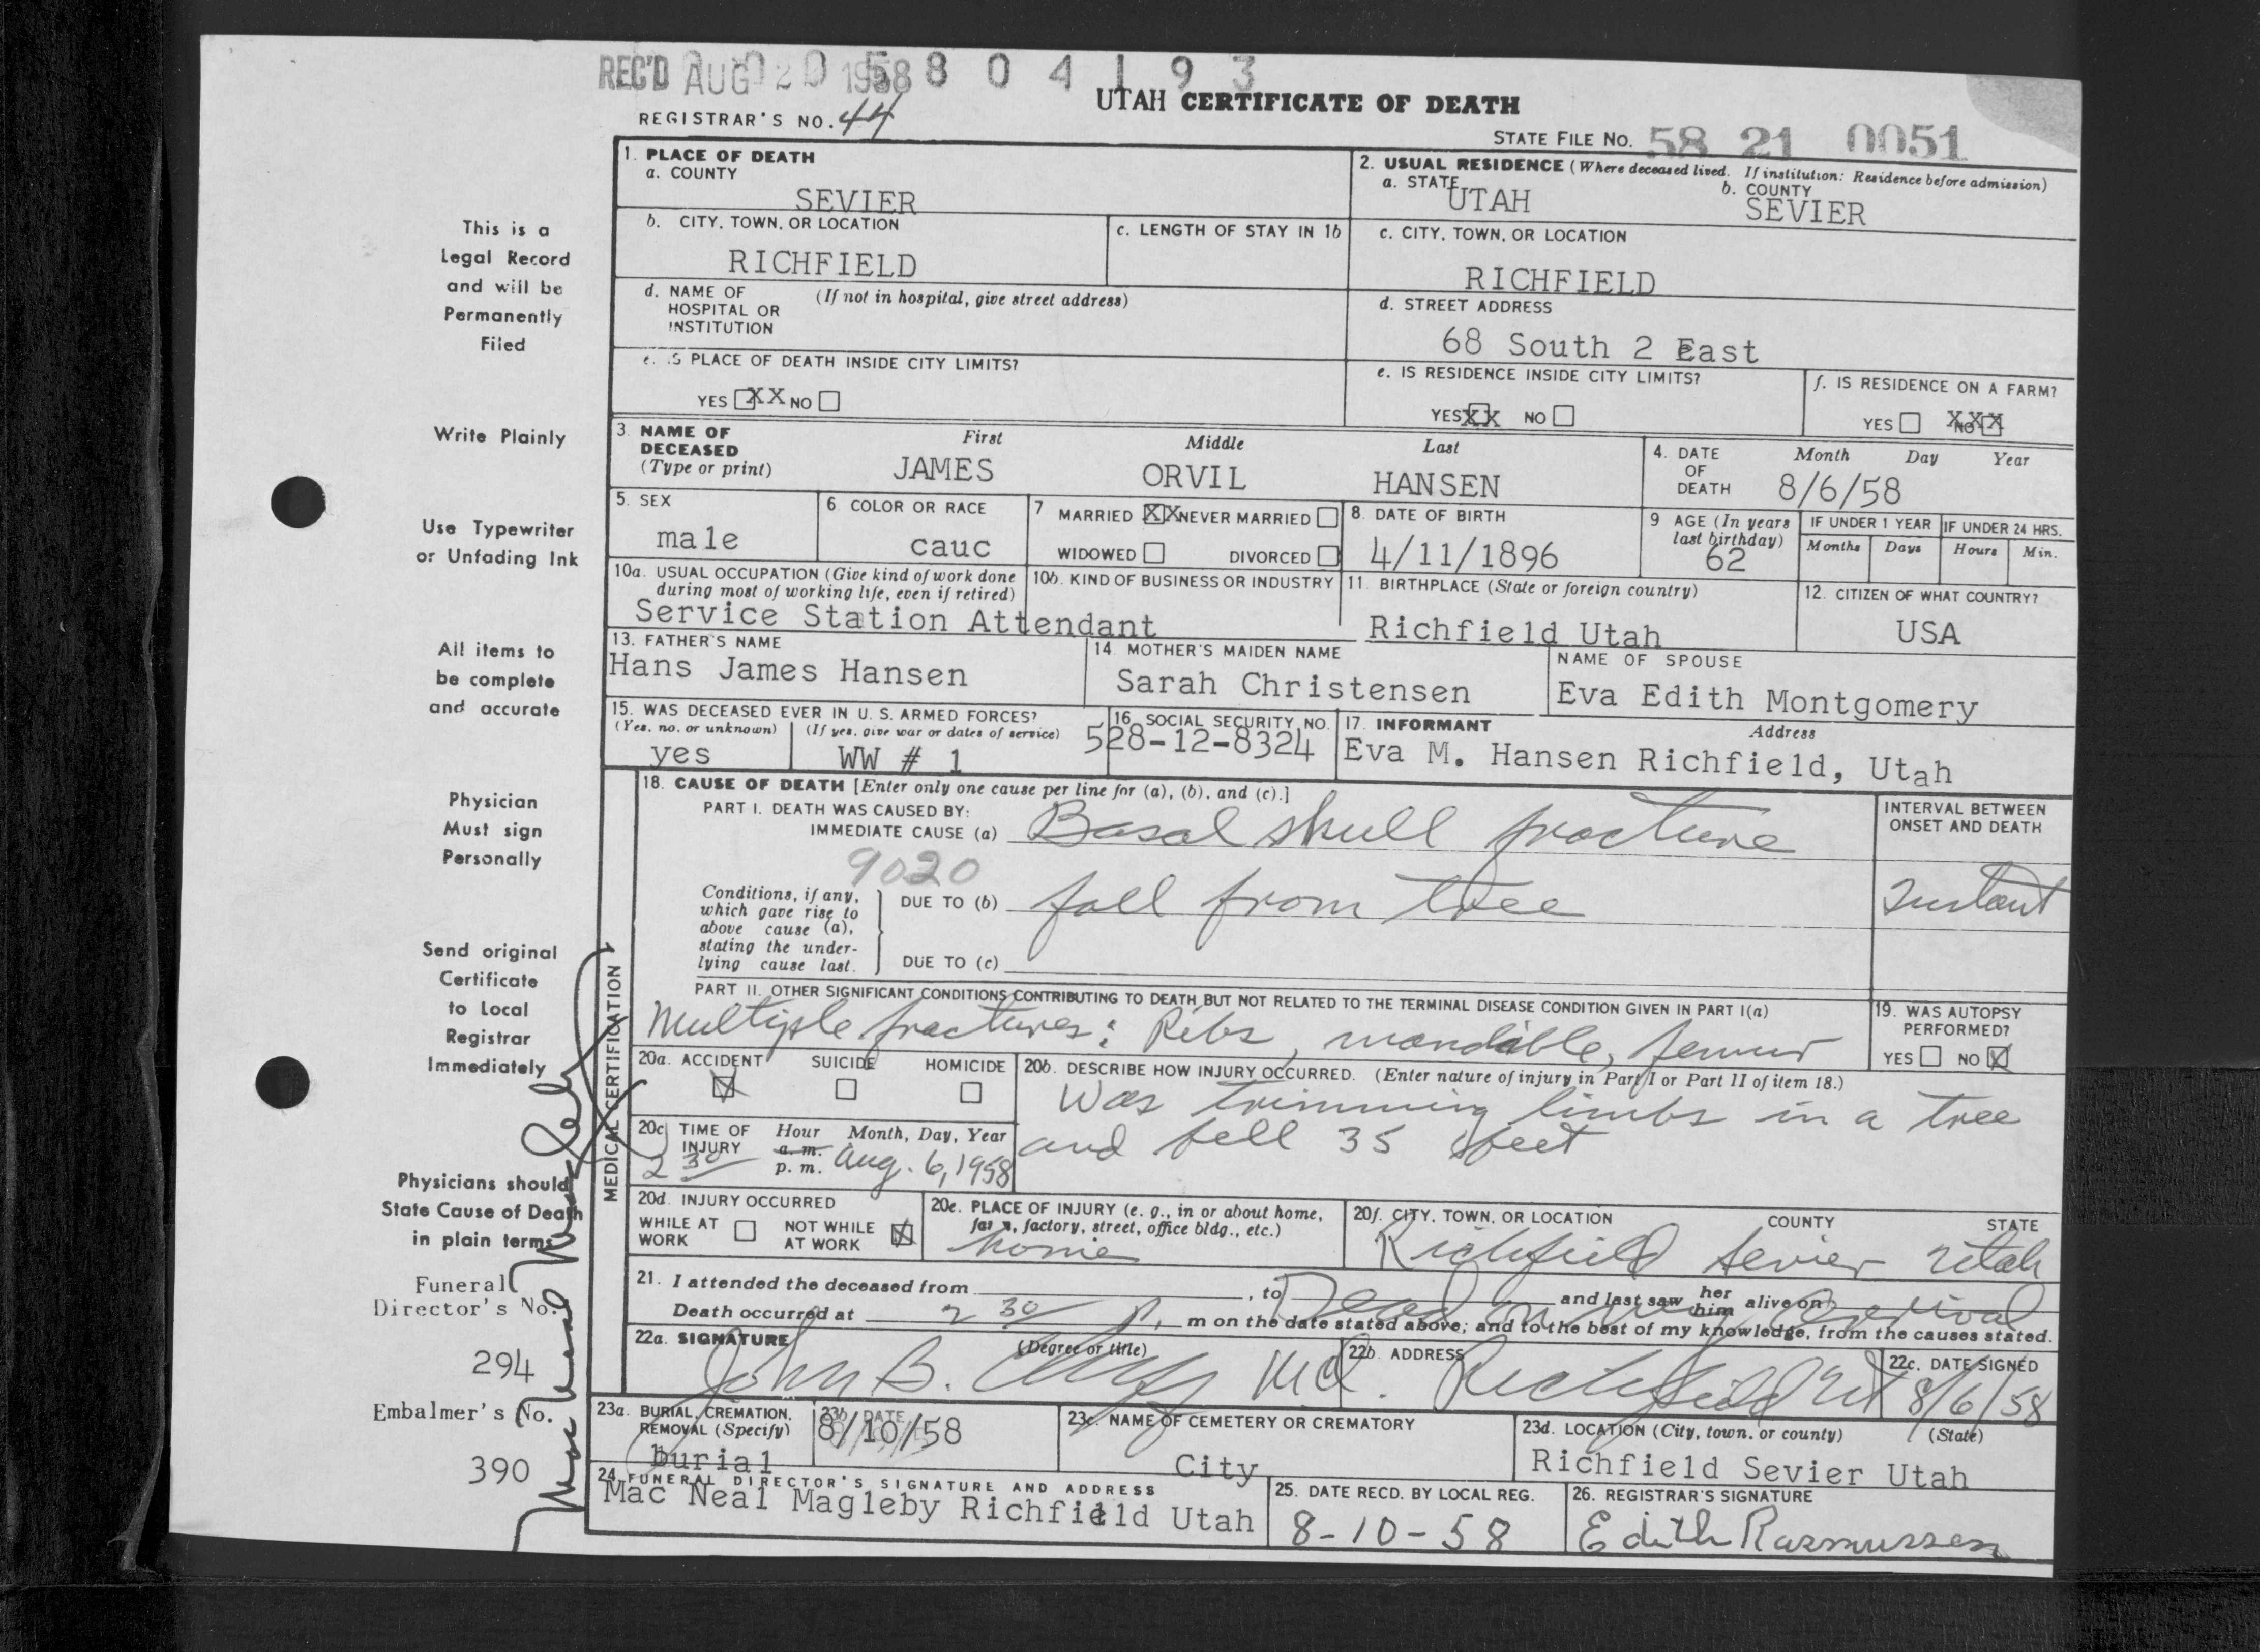 REC'D AUG 20 1958 58 0 4 1 9 3
UTAH CERTIFICATE OF DEATH
REGISTRAR'S NO. 44
STATE FILE NO. 58 21 0051
This is a
Legal Record
and will be
Permanently
Filed
Write Plainly
Use Typewriter
or Unfading Ink
All items to
be complete
and accurate
Physician
Must sign
Personally
Send original
Certificate
to Local
Registrar
Immediately
Physicians should
State Cause of Death
in plain terms
Funeral
Director's No.
294
Embalmer's No.
390
1. PLACE OF DEATH
a. COUNTY
SEVIER
2. USUAL RESIDENCE (Where deceased lived. If institution: Residence before admission)
a. STATE UTAH b. COUNTY SEVIER
b. CITY, TOWN, OR LOCATION
RICHFIELD
c. LENGTH OF STAY IN 1b
c. CITY, TOWN, OR LOCATION
RICHFIELD
d. NAME OF HOSPITAL OR INSTITUTION (If not in hospital, give street address)
d. STREET ADDRESS
68 South 2 East
e. IS PLACE OF DEATH INSIDE CITY LIMITS?
YES XX NO
e. IS RESIDENCE INSIDE CITY LIMITS?
YES XX NO
f. IS RESIDENCE ON A FARM?
YES NO XXX
3. NAME OF DECEASED (Type or print) First Middle Last
JAMES ORVIL HANSEN
4. DATE OF DEATH Month Day Year
8/6/58
5. SEX
male
6 COLOR OR RACE
cauc
7 MARRIED XX NEVER MARRIED
WIDOWED DIVORCED
8. DATE OF BIRTH
4/11/1896
9 AGE (In years last birthday)
62
IF UNDER 1 YEAR IF UNDER 24 HRS.
Months Days Hours Min.
10a. USUAL OCCUPATION (Give kind of work done during most of working life, even if retired)
Service Station Attendant
10b. KIND OF BUSINESS OR INDUSTRY
11. BIRTHPLACE (State or foreign country)
Richfield Utah
12. CITIZEN OF WHAT COUNTRY?
USA
13. FATHER'S NAME
Hans James Hansen
14. MOTHER'S MAIDEN NAME
Sarah Christensen
NAME OF SPOUSE
Eva Edith Montgomery
15. WAS DECEASED EVER IN U. S. ARMED FORCES?
(Yes, no, or unknown) (If yes, give war or dates of service)
yes WW # 1
16. SOCIAL SECURITY NO.
528-12-8324
17. INFORMANT Address
Eva M. Hansen Richfield, Utah
MEDICAL CERTIFICATION
18. CAUSE OF DEATH [Enter only one cause per line for (a), (b), and (c).]
PART I. DEATH WAS CAUSED BY:
IMMEDIATE CAUSE (a) Basal skull fracture
INTERVAL BETWEEN ONSET AND DEATH
9020
Conditions, if any, which gave rise to above cause (a), stating the underlying cause last.
DUE TO (b) fall from tree
Instant
DUE TO (c)
PART II. OTHER SIGNIFICANT CONDITIONS CONTRIBUTING TO DEATH BUT NOT RELATED TO THE TERMINAL DISEASE CONDITION GIVEN IN PART I(a)
Multiple fractures: Ribs, mandible, femur
19. WAS AUTOPSY PERFORMED?
YES NO X
20a. ACCIDENT SUICIDE HOMICIDE
20b. DESCRIBE HOW INJURY OCCURRED. (Enter nature of injury in Part I or Part II of item 18.)
Was trimming limbs in a tree
and fell 35 feet
20c. TIME OF INJURY Hour Month, Day, Year
2 30 a. m. p. m. Aug. 6, 1958
20d. INJURY OCCURRED
WHILE AT WORK NOT WHILE AT WORK X
20e. PLACE OF INJURY (e. g., in or about home, farm, factory, street, office bldg., etc.)
home
20f. CITY, TOWN, OR LOCATION COUNTY STATE
Richfield Sevier Utah
21. I attended the deceased from , to and last saw her him alive on
Dead on my arrival
Death occurred at 2 30 P. m on the date stated above; and to the best of my knowledge, from the causes stated.
22a. SIGNATURE (Degree or title)
John B. Md.
22b. ADDRESS
Richfield Ut
22c. DATE SIGNED
8/6/58
23a. BURIAL, CREMATION, REMOVAL (Specify)
burial
23b. DATE
8/10/58
23c. NAME OF CEMETERY OR CREMATORY
City
23d. LOCATION (City, town, or county) (State)
Richfield Sevier Utah
24. FUNERAL DIRECTOR'S SIGNATURE AND ADDRESS
Mac Neal Magleby Richfield Utah
25. DATE RECD. BY LOCAL REG.
8-10-58
26. REGISTRAR'S SIGNATURE
Edith Rasmussen